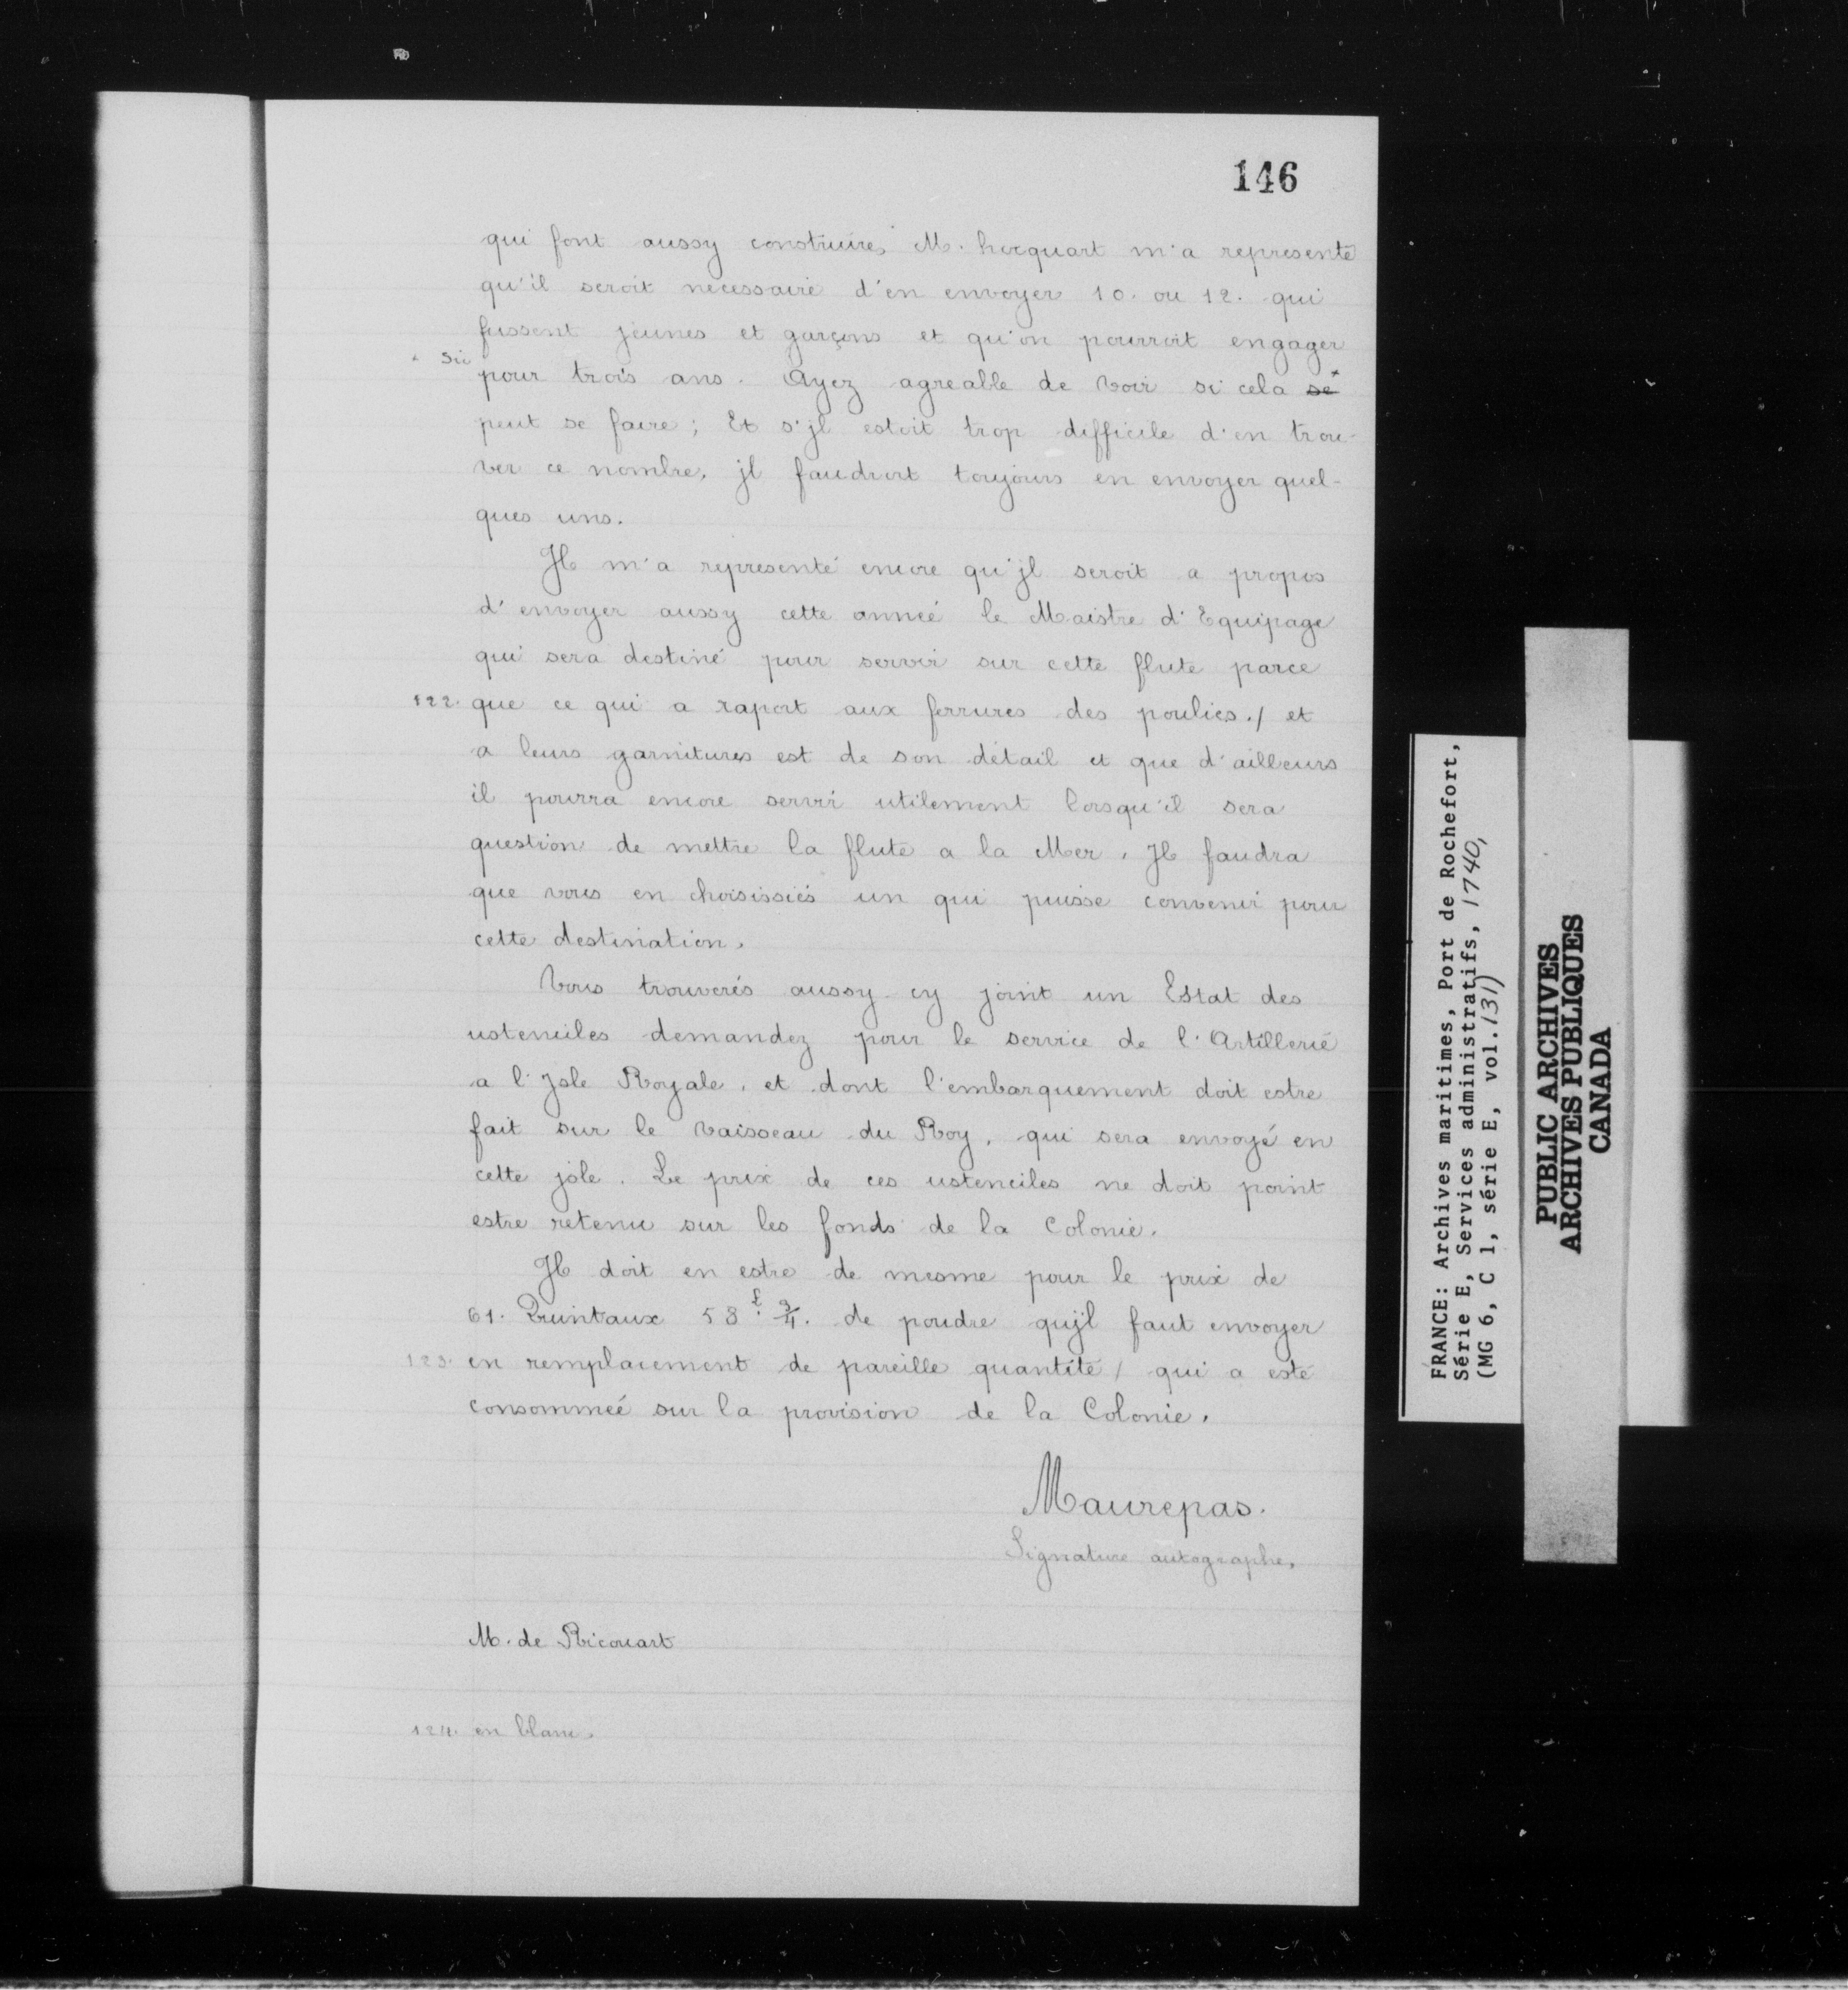 146
qui font aussy construire, M. hocquart m'a representé
qu'il seroit necessaire d'en envoyer 10. ou 12. qui
fussent jeunes et garçons et qu'on pourroit engager
* Sic
pour trois ans. Ayez agreable de voir si cela se*
peut se faire; Et s'jl estoit trop difficile d'en trou-
ver ce nombre, jl faudroit toujours en envoyer quel-
ques uns.
Jl m'a representé encore qu'jl seroit a propos
d'envoyer aussy cette année le Maistre d'Equipage
qui sera destiné pour servir sur cette flute parce
122. que ce qui a raport aux ferrures des poulies./ et
a leurs garnitures est de son détail et que d'ailleurs
il pourra encore servir utilement lorsqu'il sera
question de mettre la flute a la Mer. Jl faudra
que vous en choisissiés un qui puisse convenir pour
cette destination.
Vous trouverés aussy cy joint un Estat des
ustenciles demandez pour le service de l'Artillerie
a l'Jsle Royale, et dont l'embarquement doit estre
fait sur le vaisseau du Roy, qui sera envoyé en
cette jsle. Le prix de ces ustenciles ne doit point
estre retenu sur les fonds de la Colonie.
Jl doit en estre de mesme pour le prix de
61. Quintaux 58 £. 3/4. de poudre qu'jl faut envoyer
123. en remplacement de pareille quantité / qui a esté
consommée sur la provision de la Colonie.
Maurepas.
Signature autographe.
M. de Ricouart
124. en blanc.
FRANCE: Archives maritimes, Port de Rochefort,
Série E, Services administratifs, 1740,
(MG 6, C 1, série E, vol. 131)
PUBLIC ARCHIVES
ARCHIVES PUBLIQUES
CANADA